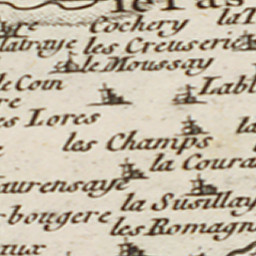 Cochery
les Creuserie
le Moussay
le Coin
Labl
es Lores
les Champs
la
la Coura
aurensaye
la Susillay
bougere
les Romagn
aux